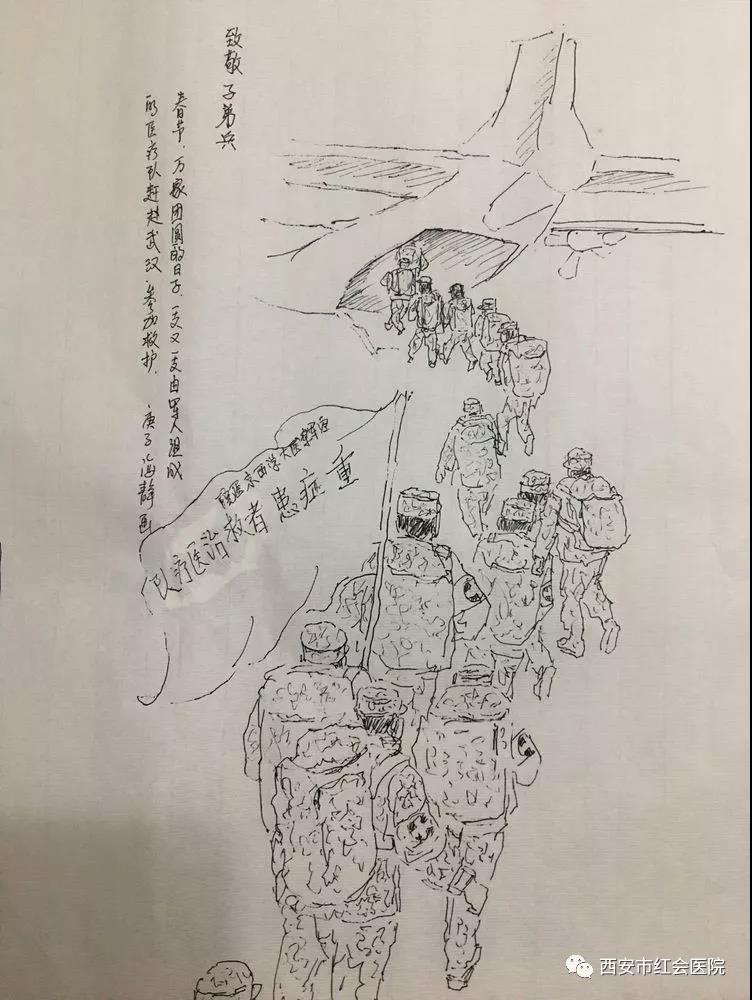 致敬子弟兵
春节，万家团圆的日子，一支又一支由军人组成
的医疗队赶赴武汉，参加救护。 庚子 海静画
军医大学西京医院
重症患者救治医疗队
西安市红会医院